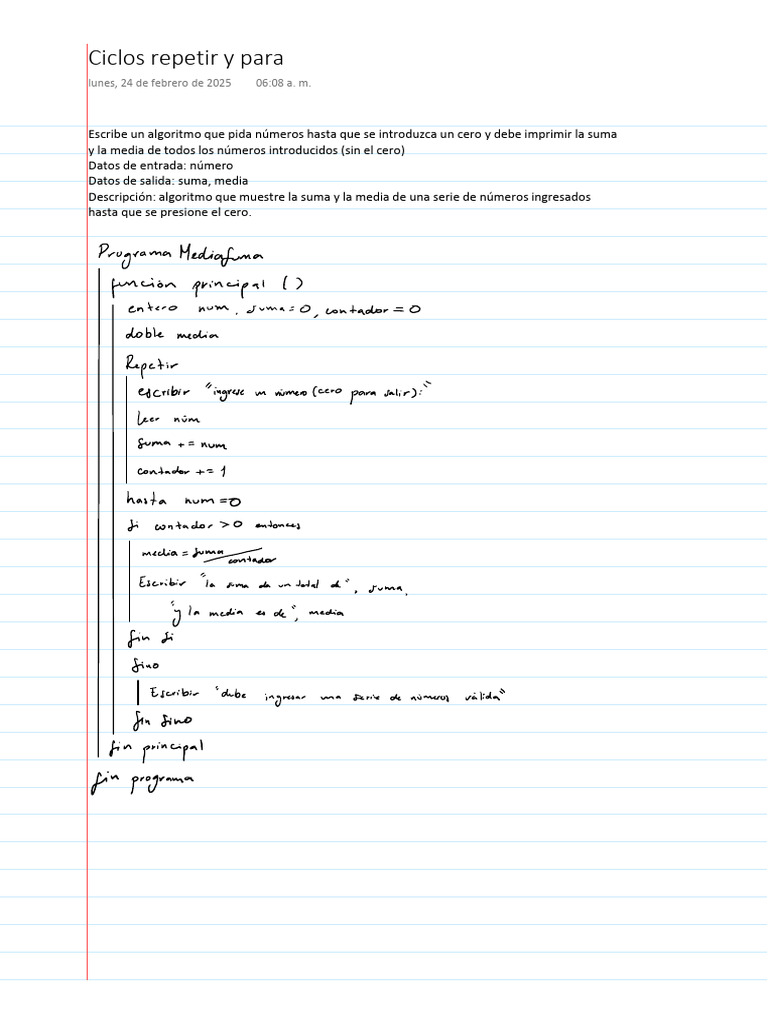 Ciclos repetir y para
lunes, 24 de febrero de 2025 06:08 a. m.
Escribe un algoritmo que pida números hasta que se introduzca un cero y debe imprimir la suma
y la media de todos los números introducidos (sin el cero)
Datos de entrada: número
Datos de salida: suma, media
Descripción: algoritmo que muestre la suma y la media de una serie de números ingresados
hasta que se presione el cero.
Programa MediaSuma
función principal ()
entero num, suma=0, contador = 0
doble media
Repetir
escribir "ingrese un número (cero para salir):"
leer núm
suma += num
contador += 1
hasta num=0
Si contador >0 entonces
media = suma/contador
Escribir "la suma da un total de", suma,
"y la media es de", media
fin si
sino
Escribir "debe ingresar una serie de números válida"
fin sino
fin principal
fin programa